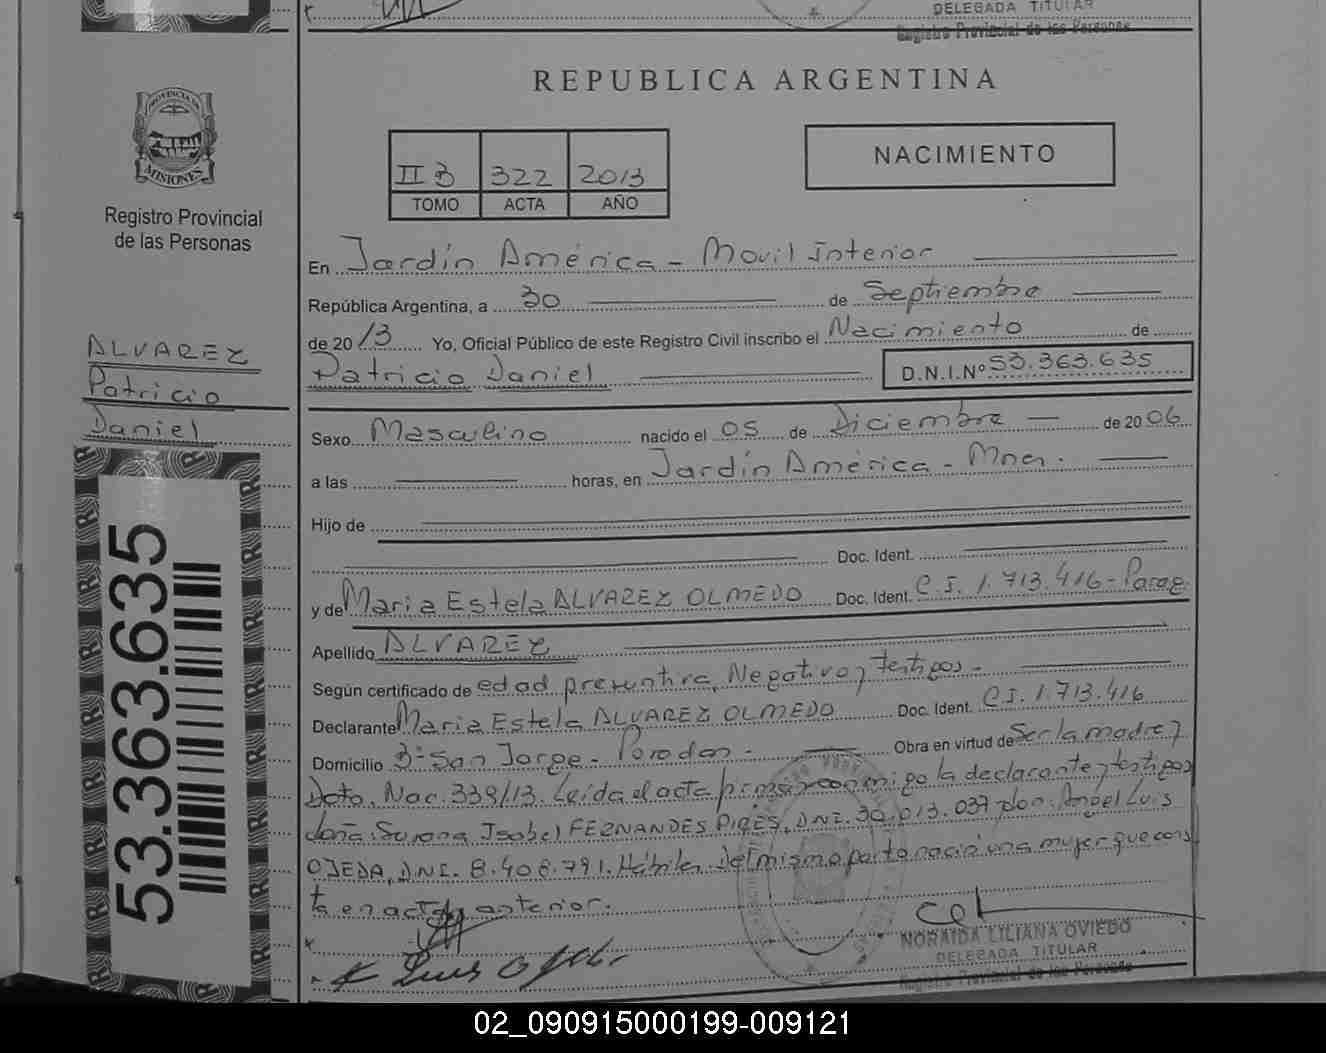 DELEGADA TITULAR
Registro Provincial de las Personas
REPUBLICA ARGENTINA
PROVINCIA DE
MISIONES
Registro Provincial
de las Personas
II B 322 2013
TOMO ACTA AÑO
NACIMIENTO
En Jardín América - Movil Interior
República Argentina, a 30 de Septiembre
de 2013 Yo, Oficial Público de este Registro Civil inscribo el Nacimiento de
Patricio Daniel D.N.I.Nº 53.363.635
ALVAREZ
Patricio
Daniel
Sexo Masculino nacido el 05 de Diciembre de 2006
a las horas, en Jardín América - Mnes.
Hijo de
Doc. Ident.
y de Maria Estela ALVAREZ OLMEDO Doc. Ident. C.I. 1.713.416 - Parag.
Apellido ALVAREZ
Según certificado de edad presuntiva, Negativo y testigos -
Declarante Maria Estela ALVAREZ OLMEDO Doc. Ident. C.I. 1.713.416
Domicilio Bº San Jorge - Obra en virtud de Ser la madre y
Nac. 338/13. Leída el acta firmas conmigo la declarante y testigos
doña Susana Isabel FERNANDES PIRES, DNI. 30.013.037 y don Angel Luis
OJEDA, DNI. 8.408.791. Hábiles. Del mismo parto nació una mujer que cons
ta en acta anterior.
NORAIDA LILIANA OVIEDO
DELEGADA TITULAR
Registro Provincial de las Personas
53.363.635
02_090915000199-009121